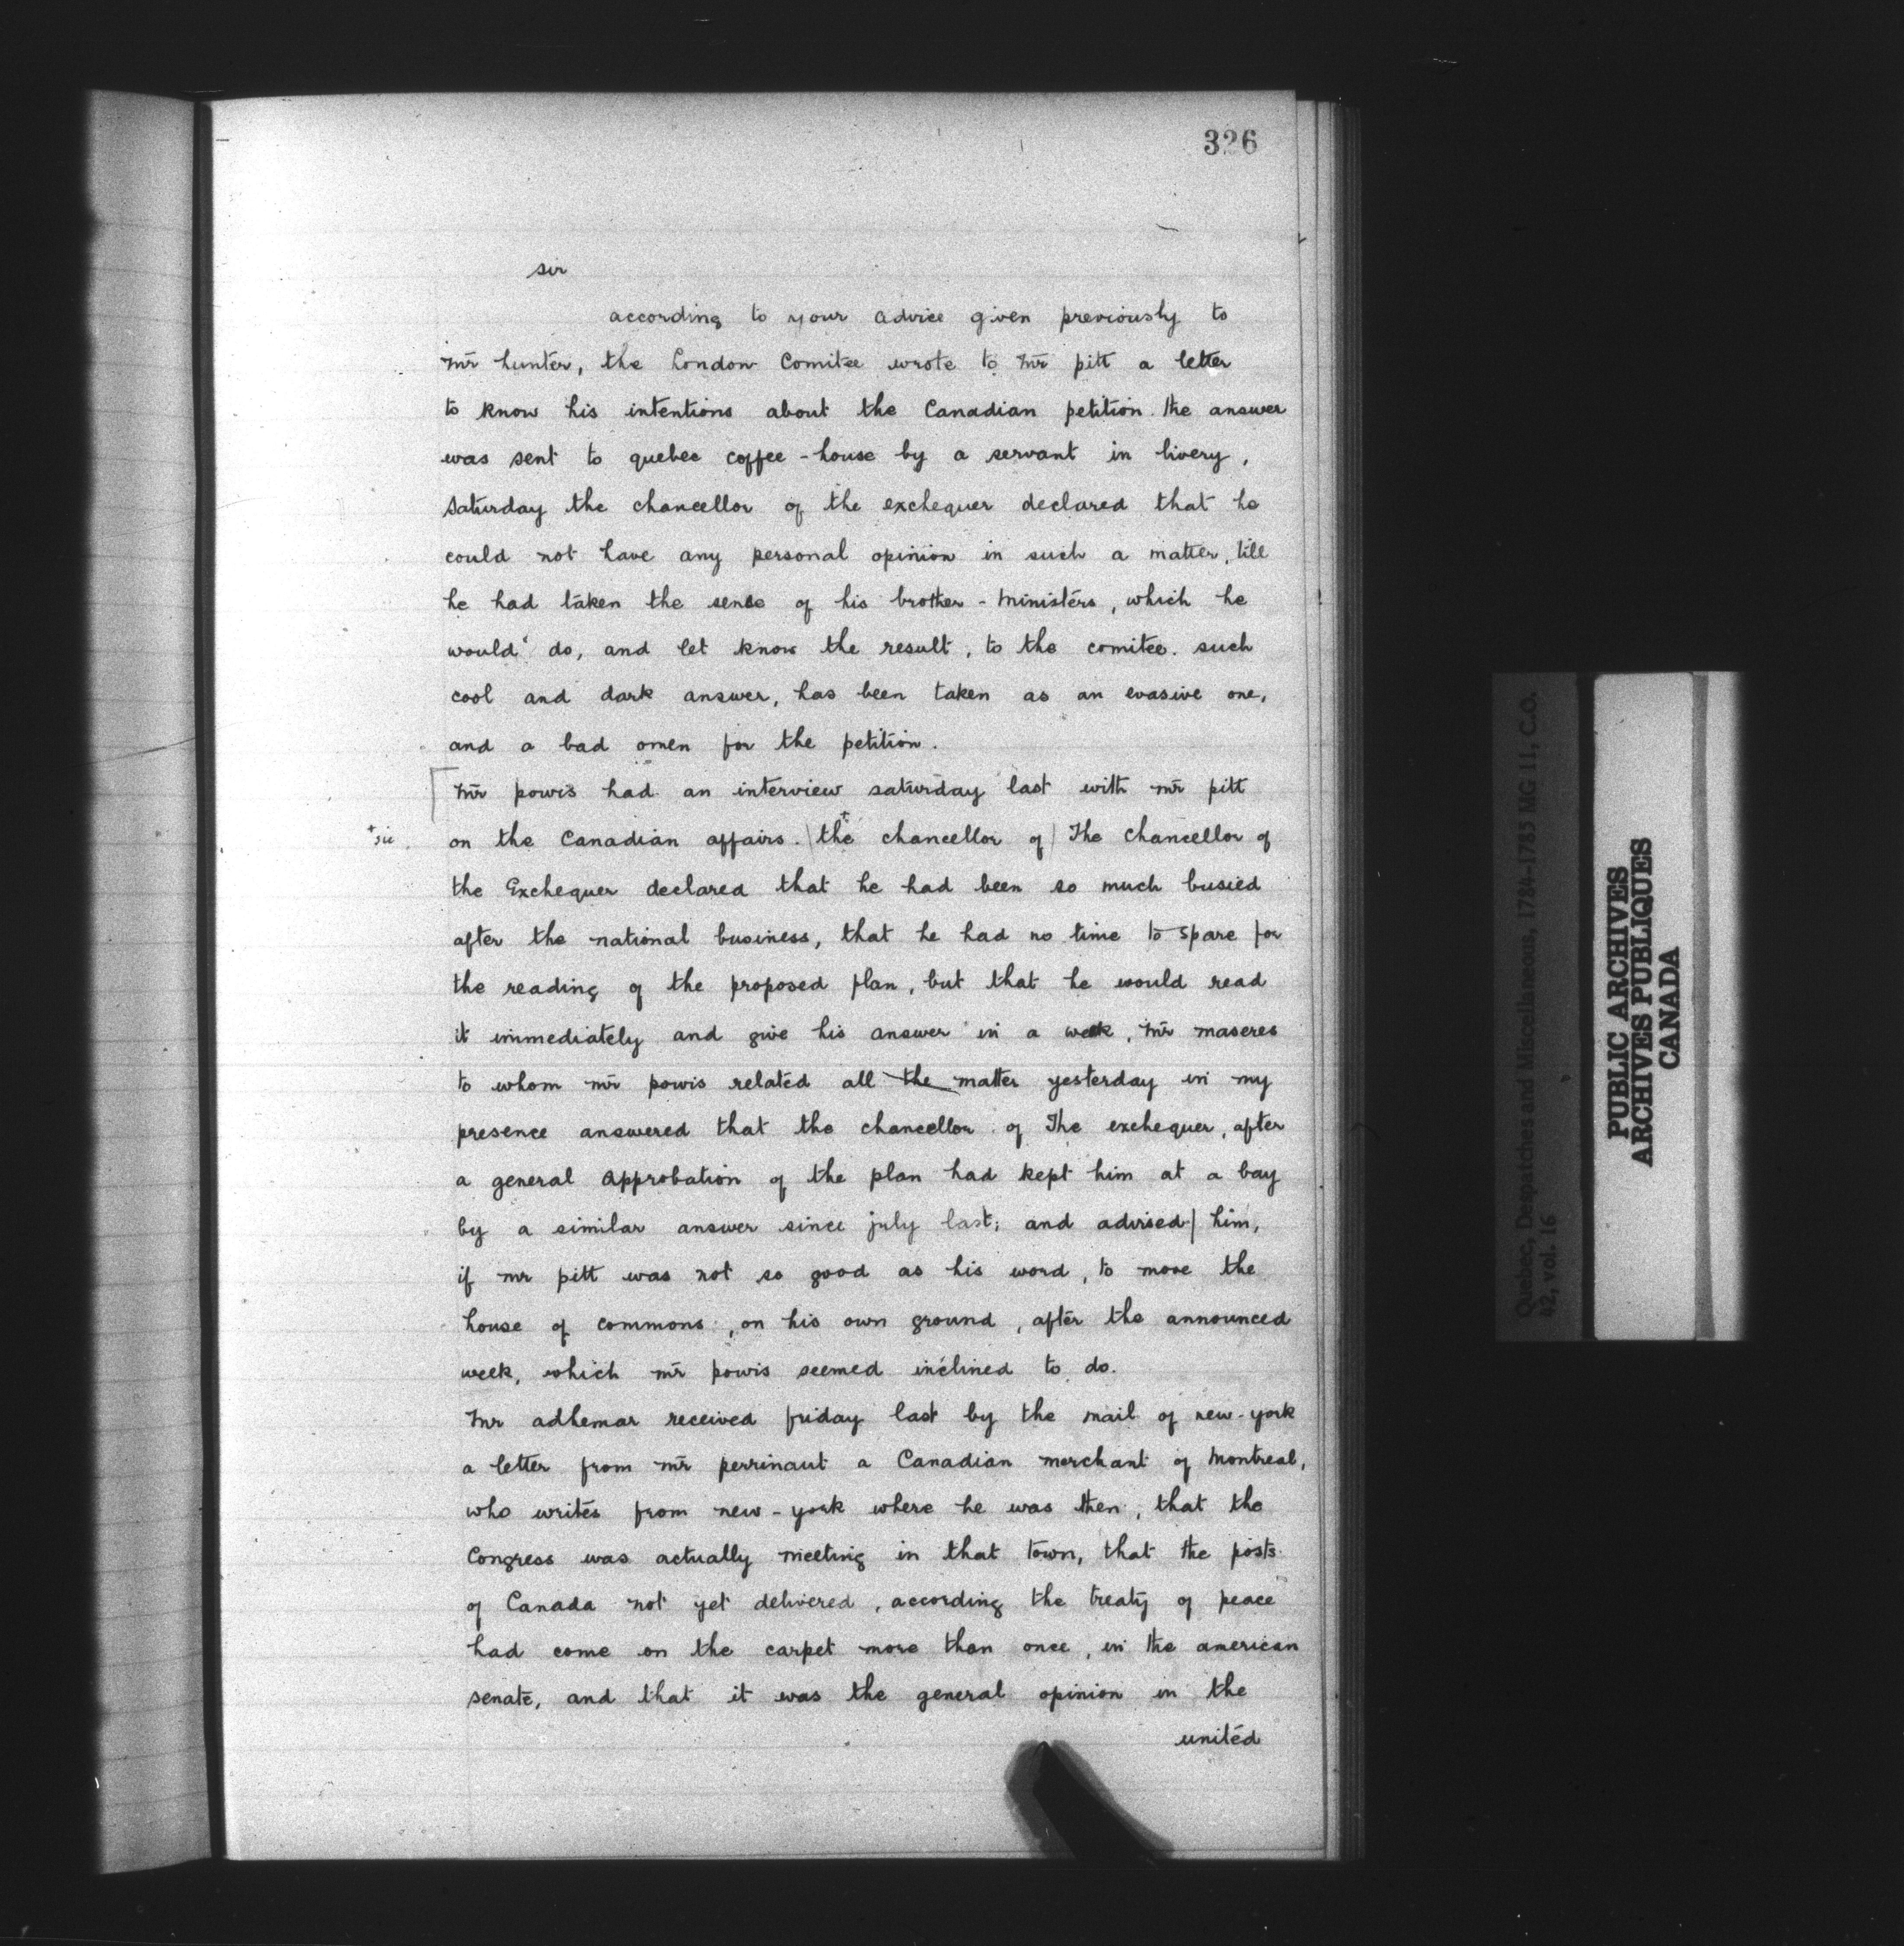 326
sir
according to your advice given previously to
mr hunter, the London Comitee wrote to mr pitt a letter
to know his intentions about the Canadian petition. the answer
was sent to quebec coffee-house by a servant in livery,
saturday the chancellor of the exchequer declared that he
could not have any personal opinion in such a matter, till
he had taken the sense of his brother-ministers, which he
would do, and let know the result, to the comitee. such
cool and dark answer, has been taken as an evasive one,
and a bad omen for the petition.
mr powis had an interview saturday last with mr pitt
+sic. on the Canadian affairs. (the+ chancellor of) The chancellor of
the Exchequer declared that he had been so much busied
after the national business, that he had no time to spare for
the reading of the proposed plan, but that he would read
it immediately and give his answer in a week, mr maseres
to whom mr powis related all the matter yesterday in my
presence answered that the chancellor of The exchequer, after
a general approbation of the plan had kept him at a bay
by a similar answer since july last; and advised him,
if mr pitt was not so good as his word, to move the
house of commons, on his own ground, after the announced
week, which mr powis seemed inclined to do.
mr adhemar received friday last by the mail of new-york
a letter from mr perrinaut a Canadian merchant of Montreal,
who writes from new-york where he was then, that the
Congress was actually meeting in that town, that the posts
of Canada not yet delivered, according the treaty of peace
had come on the carpet more than once, in the american
senate, and that it was the general opinion in the
united
Quebec, Despatches and Miscellaneous, 1784-1785 MG 11, C.O.
42, vol. 16
PUBLIC ARCHIVES
ARCHIVES PUBLIQUES
CANADA